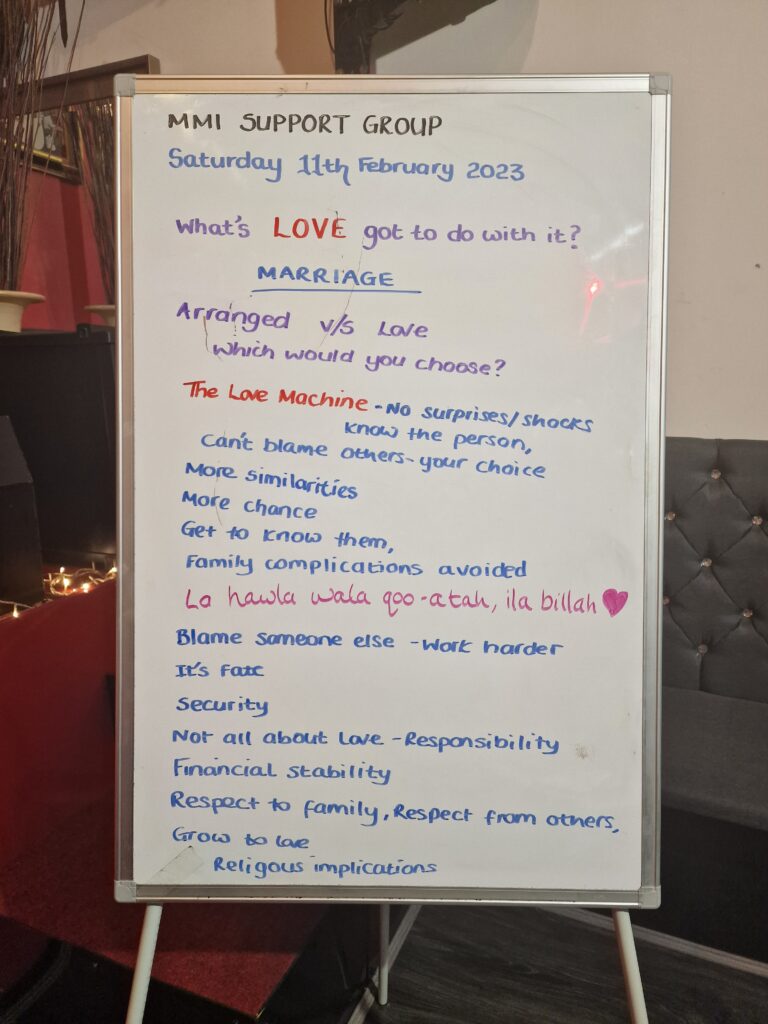 MMI SUPPORT GROUP
Saturday 11th February 2023
What's LOVE got to do with it?
MARRIAGE
Arranged v/s Love
Which would you choose?
The Love Machine - No surprises/shocks
Know the person,
Can't blame others - your choice
More similarities
More chance
Get to know them,
Family complications avoided
La hawla wala qoo-atah, ila billah
Blame someone else - Work harder
It's Fate
Security
Not all about Love - Responsibility
Financial stability
Respect to family, Respect from others,
Grow to love
Religous implications